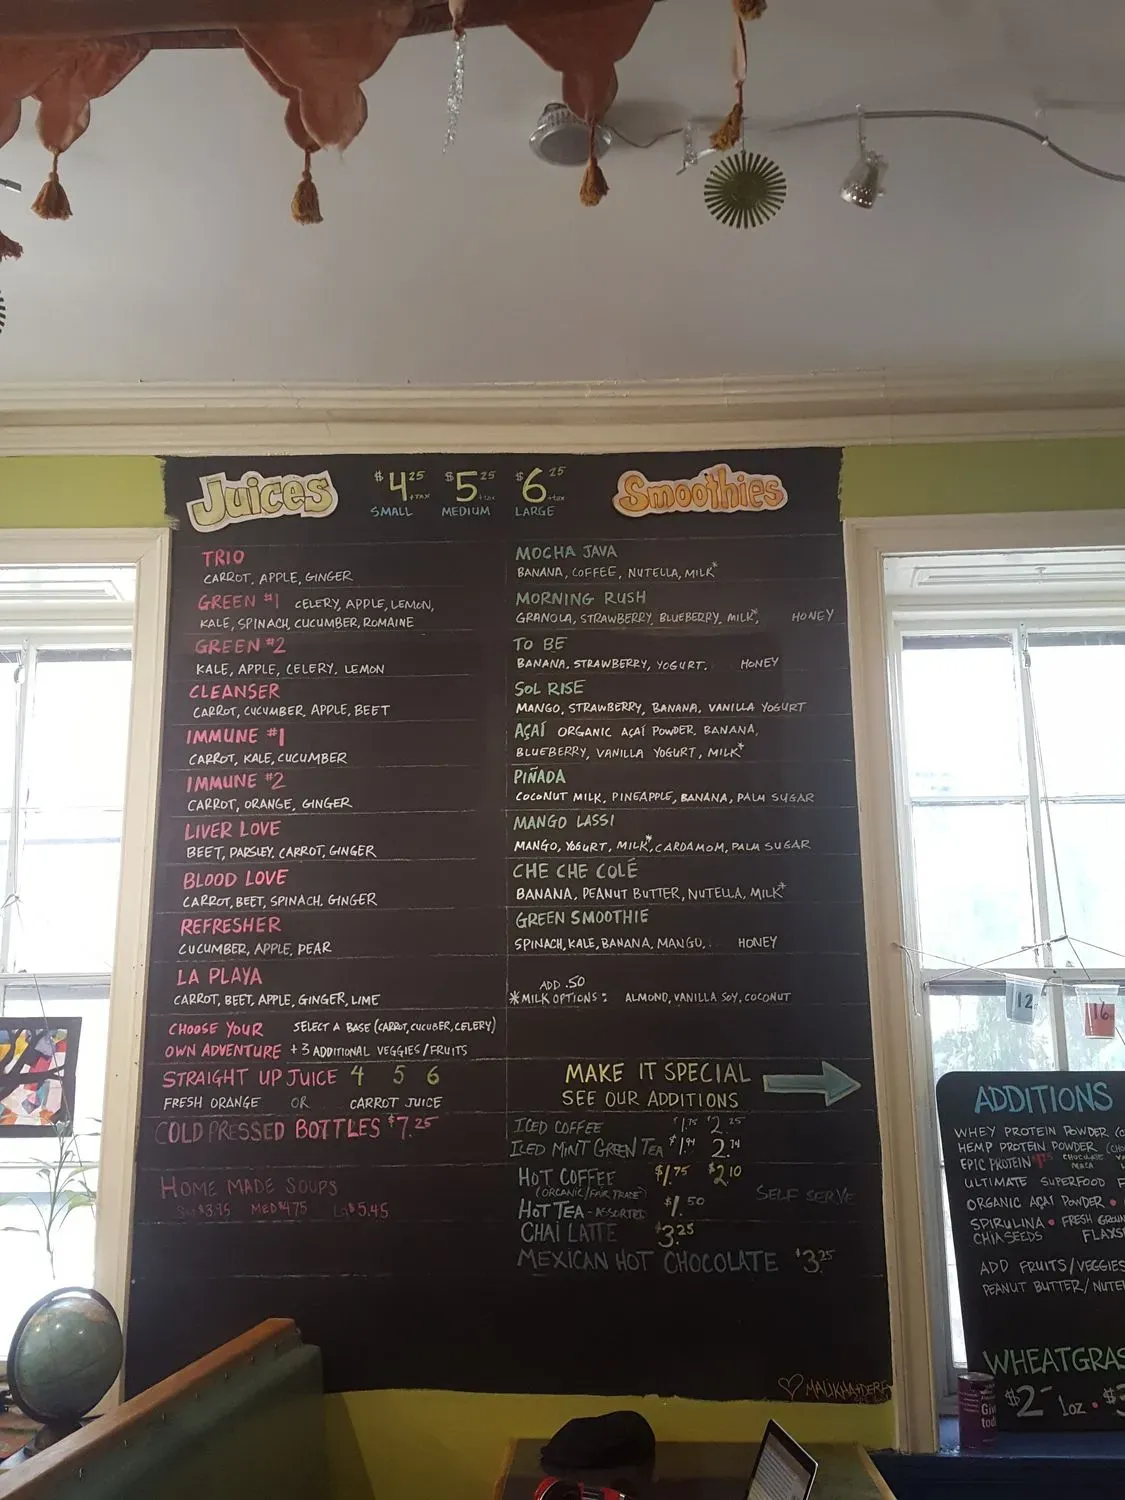 Juices
$4.25 +TAX $5.25 +tax $6.25 +tax
SMALL MEDIUM LARGE
Smoothies
TRIO
CARROT, APPLE, GINGER
GREEN #1 CELERY, APPLE, LEMON,
KALE, SPINACH, CUCUMBER, ROMAINE
GREEN #2
KALE, APPLE, CELERY, LEMON
CLEANSER
CARROT, CUCUMBER, APPLE, BEET
IMMUNE #1
CARROT, KALE, CUCUMBER
IMMUNE #2
CARROT, ORANGE, GINGER
LIVER LOVE
BEET, PARSLEY, CARROT, GINGER
BLOOD LOVE
CARROT, BEET, SPINACH, GINGER
REFRESHER
CUCUMBER, APPLE, PEAR
LA PLAYA
CARROT, BEET, APPLE, GINGER, LIME
CHOOSE YOUR SELECT A BASE (CARROT, CUCUBER, CELERY)
OWN ADVENTURE +3 ADDITIONAL VEGGIES/FRUITS
STRAIGHT UP JUICE 4 5 6
FRESH ORANGE OR CARROT JUICE
COLD PRESSED BOTTLES $7.25
HOME MADE SOUPS
$3.95 MED $4.75 $5.45
MOCHA JAVA
BANANA, COFFEE, NUTELLA, MILK*
MORNING RUSH
GRANOLA, STRAWBERRY, BLUEBERRY, MILK*, HONEY
TO BE
BANANA, STRAWBERRY, YOGURT, HONEY
SOL RISE
MANGO, STRAWBERRY, BANANA, VANILLA YOGURT
AÇAÍ ORGANIC AÇAÍ POWDER, BANANA,
BLUEBERRY, VANILLA YOGURT, MILK*
PIÑADA
COCONUT MILK, PINEAPPLE, BANANA, PALM SUGAR
MANGO LASSI
MANGO, YOGURT, MILK*, CARDAMOM, PALM SUGAR
CHE CHE COLÉ
BANANA, PEANUT BUTTER, NUTELLA, MILK*
GREEN SMOOTHIE
SPINACH, KALE, BANANA, MANGO, HONEY
ADD .50
*MILK OPTIONS: ALMOND, VANILLA SOY, COCONUT
MAKE IT SPECIAL
SEE OUR ADDITIONS
ICED COFFEE $1.75 $2.25
ICED MINT GREEN TEA $1.94 2.74
HOT COFFEE $1.75 $2.10
(ORGANIC/FAIR TRADE)
SELF SERVE
HOT TEA - ASSORTED $1.50
CHAI LATTE $3.25
MEXICAN HOT CHOCOLATE $3.25
12
16
ADDITIONS
WHEY PROTEIN POWDER
HEMP PROTEIN POWDER
EPIC PROTEIN CHOCOLATE
MACA
ULTIMATE SUPERFOOD
ORGANIC AÇAI POWDER •
SPIRULINA • FRESH
CHIA SEEDS
ADD FRUITS/VEGGIES
PEANUT BUTTER/
$2- 1oz •